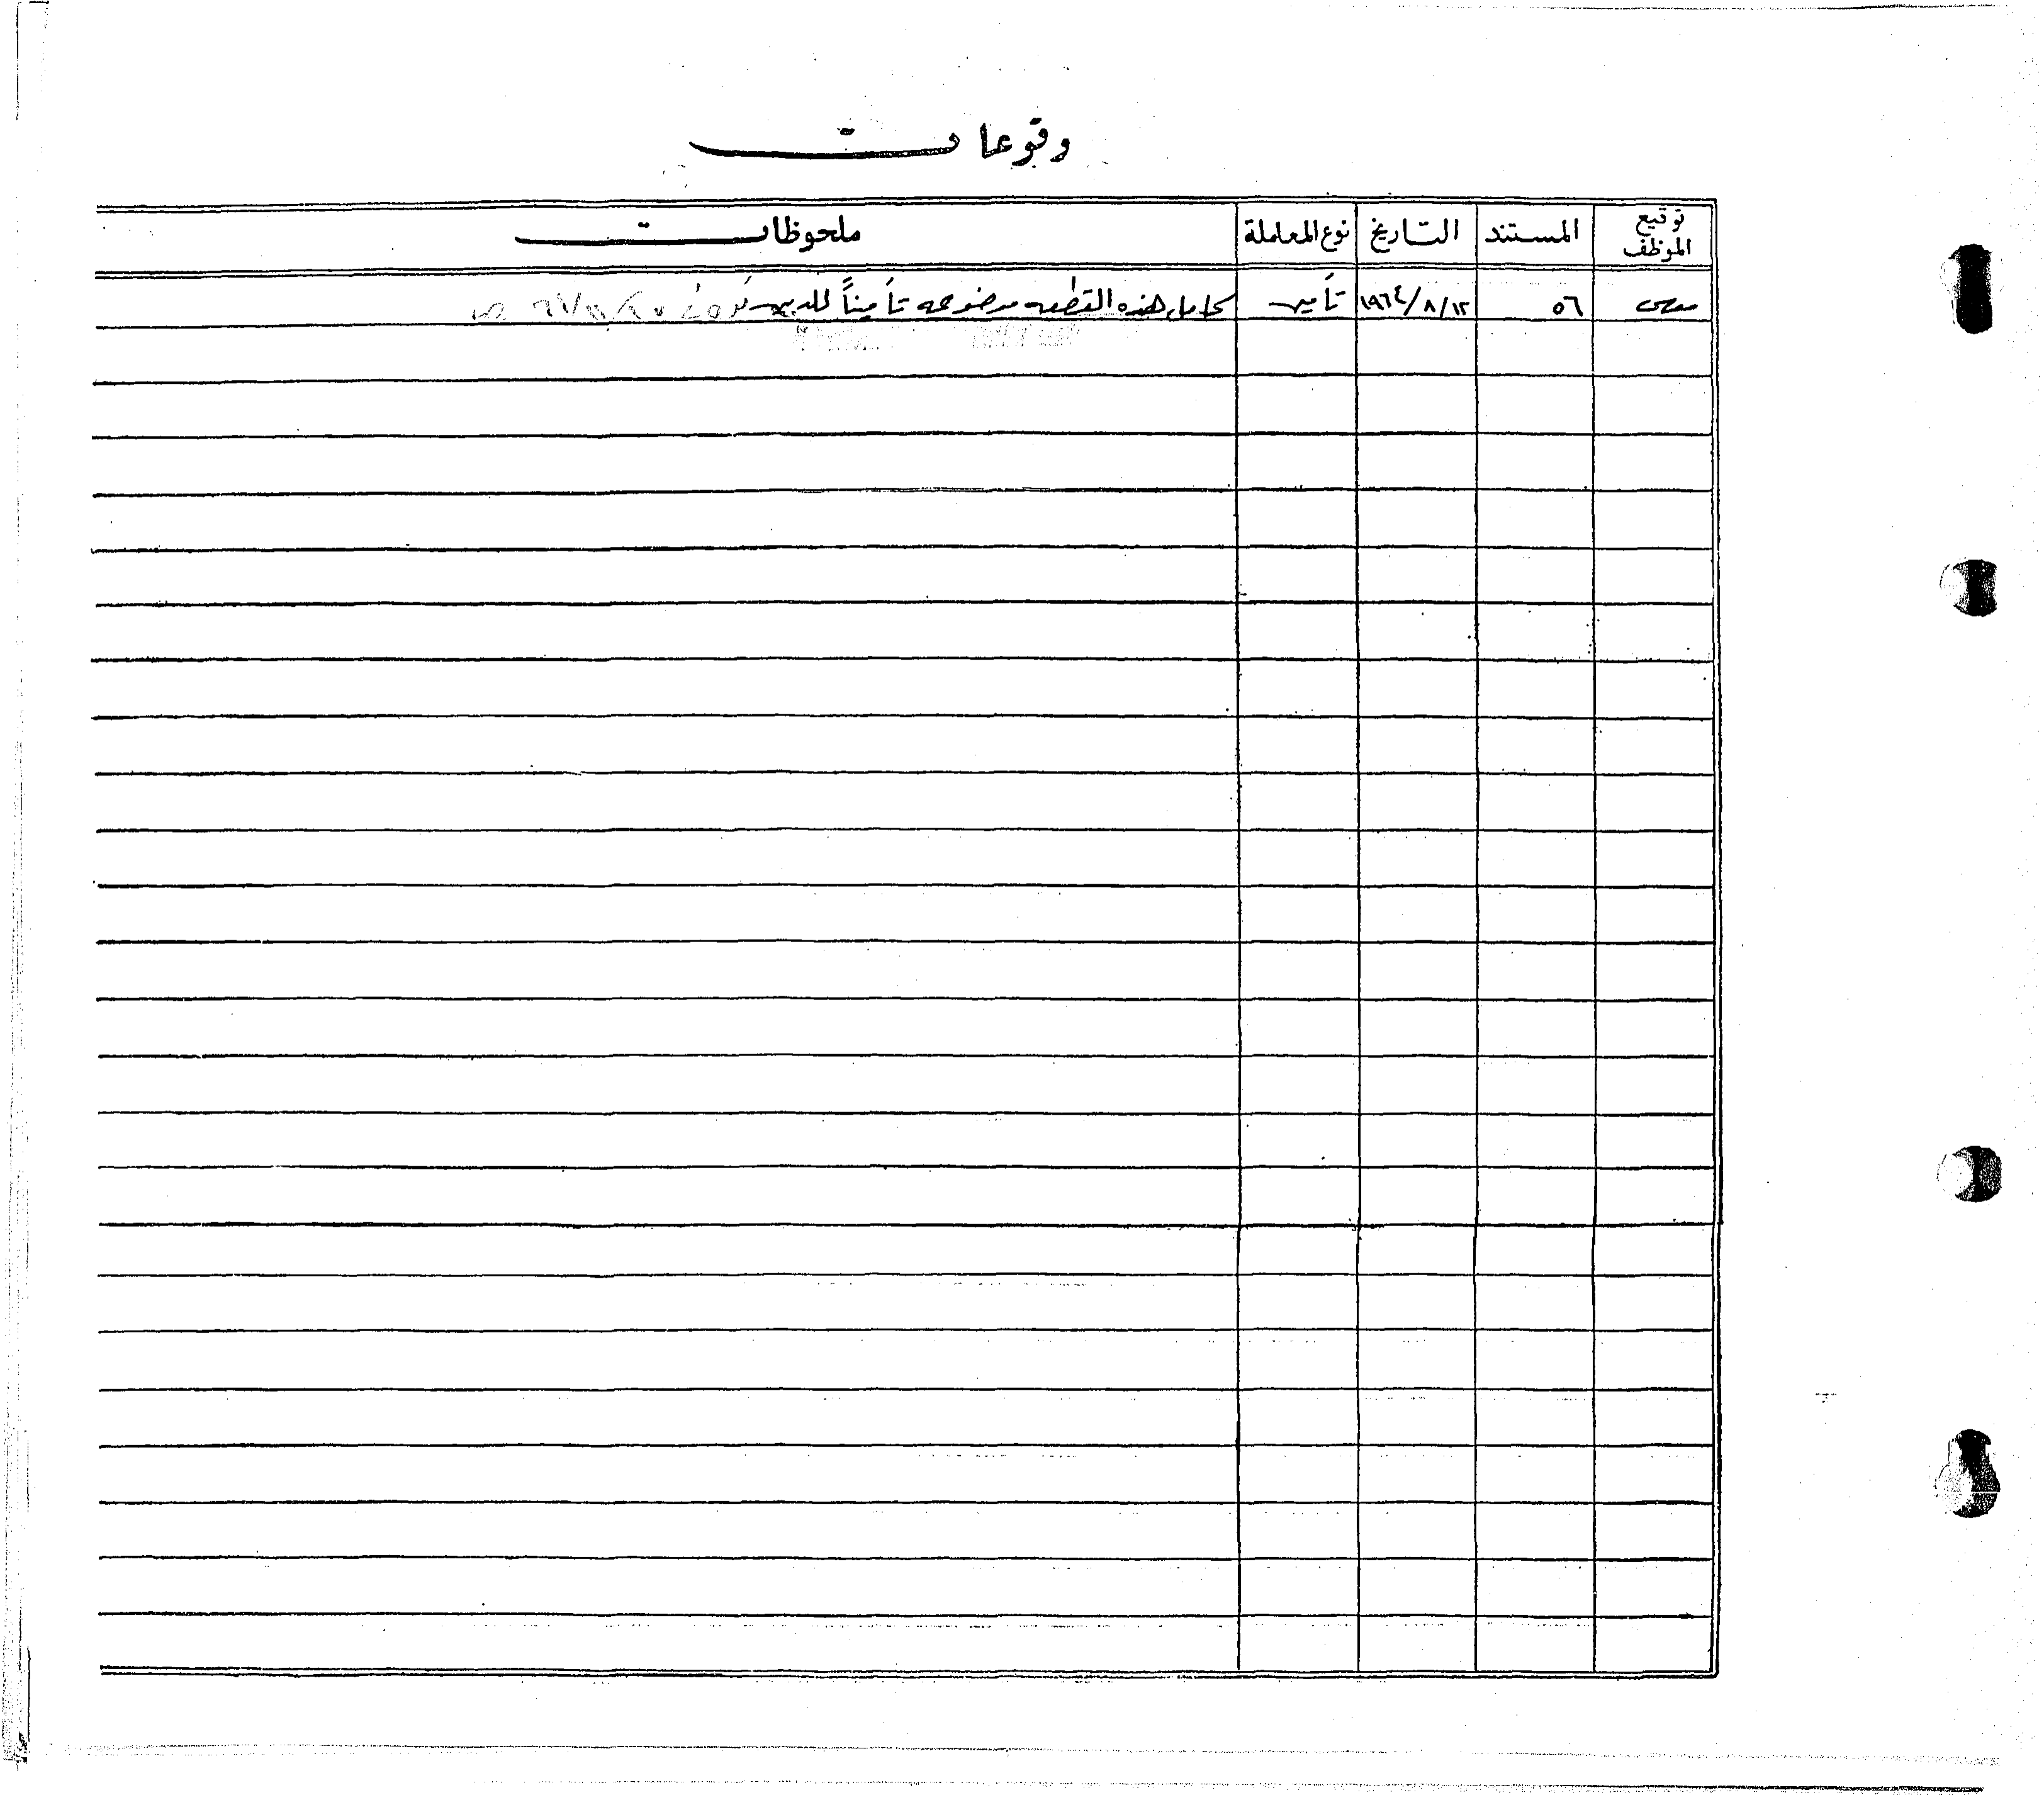 وقوعات
توقيع الموظف المستند التاريخ نوع المعاملة ملحوظات
٥٦ ١٩٦٤/٨/١٢ تأمين كامل هذه القطعه موضوعه تأميناً للدين